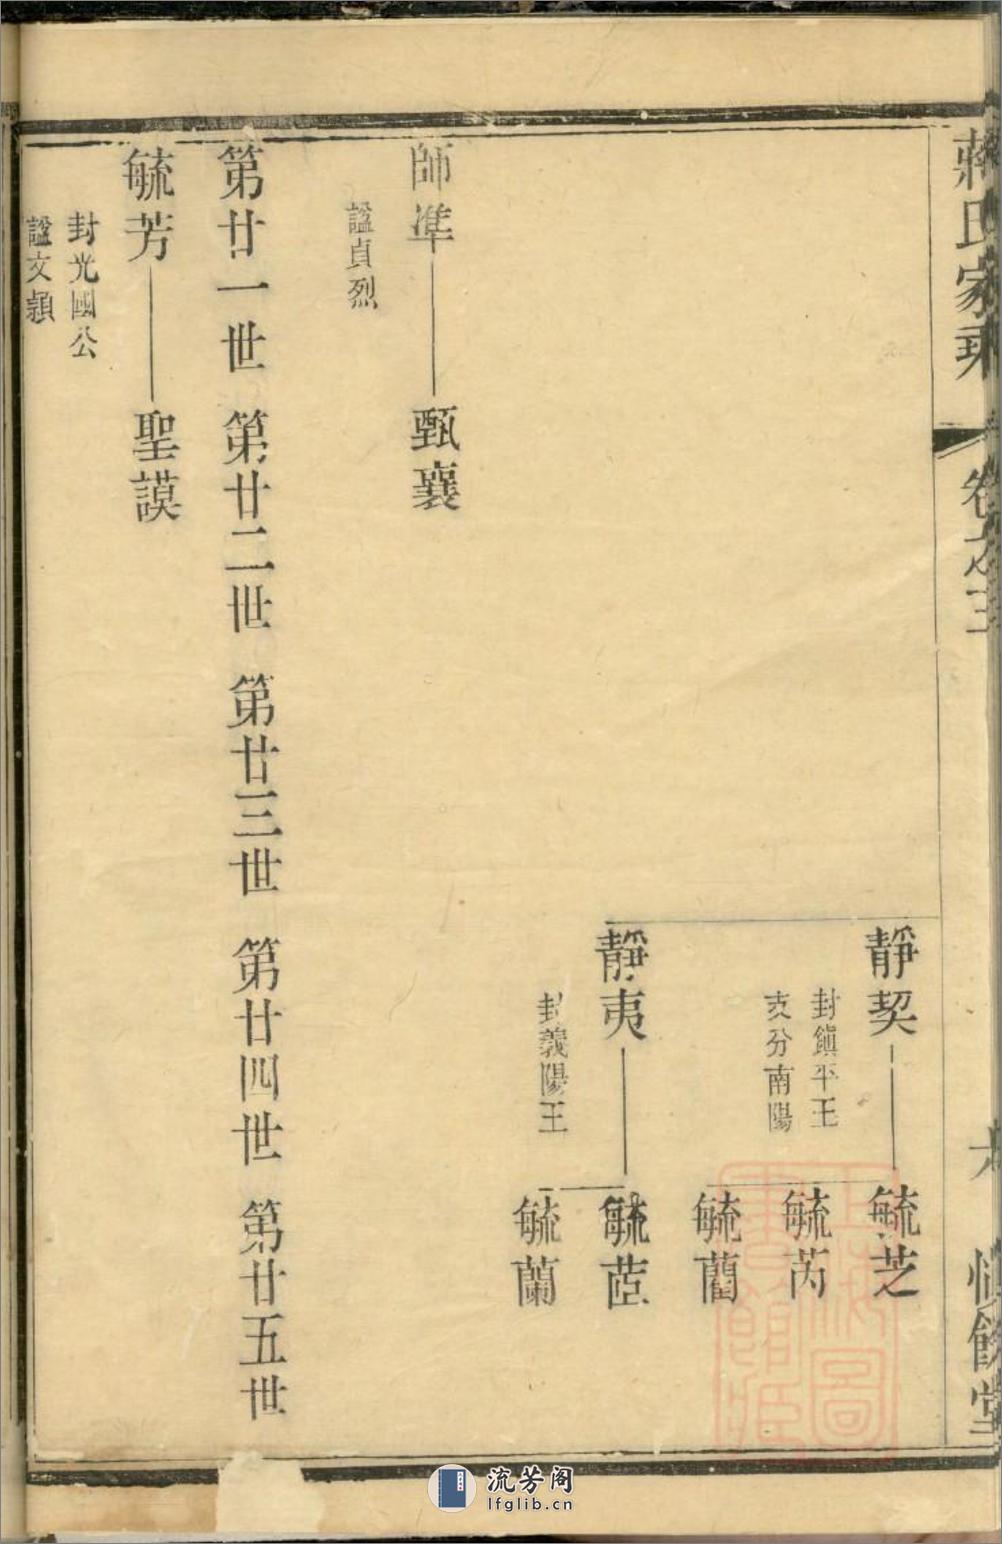 蔣氏家乘
卷之三
慎餘堂
靜契
封鎮平王
支分南陽
毓芝
毓芮
毓藺
靜夷
封義陽王
毓茝
毓蘭
師準
諡貞烈
甄襄
第廿一世 第廿二世 第廿三世 第廿四世 第廿五世
毓芳
聖謨
封光國公
諡文顯
流芳阁
lfglib.cn